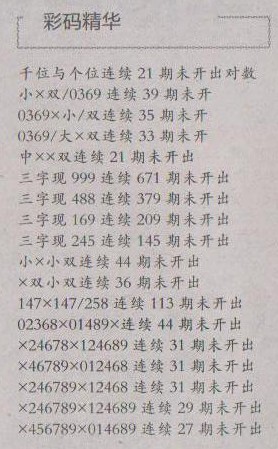 彩码精华
千位与个位连续 21 期未开出对数
小×双/0369 连续 39 期未开
0369×小/双连续 35 期未开
0369/大×双连续 33 期未开
中××双连续 21 期未开出
三字现 999 连续 671 期未开出
三字现 488 连续 379 期未开出
三字现 169 连续 209 期未开出
三字现 245 连续 145 期未开出
小×小双连续 44 期未开出
×双小双连续 36 期未开出
147×147/258 连续 113 期未开出
02368×01489×连续 44 期未开出
×24678×124689 连续 31 期未开出
×46789×012468 连续 31 期未开出
×246789×12468 连续 31 期未开出
×246789×124689 连续 29 期未开出
×456789×014689 连续 27 期未开出